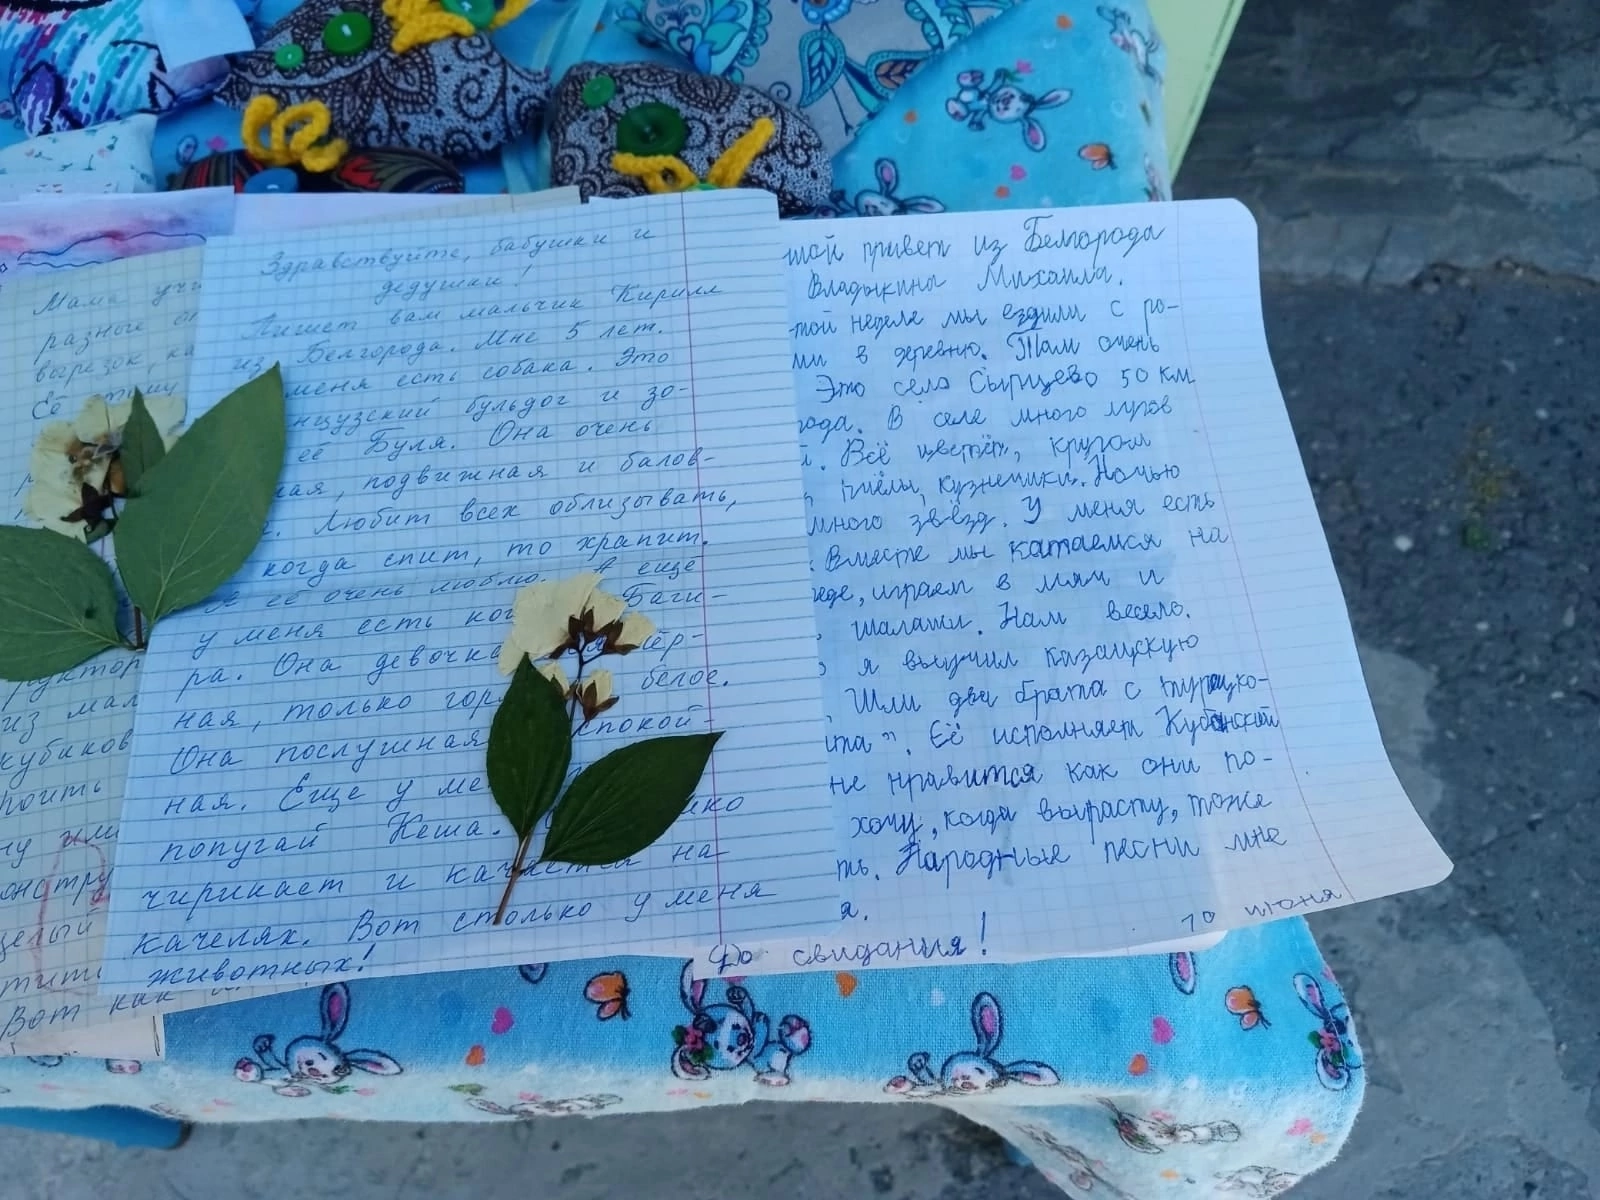 Мама
разные
вырезок,
Её
из
кубиков
или
целый
Вот как
Здравствуйте, бабушки и
дедушки!
Пишет вам мальчик Кирилл
из Белгорода. Мне 5 лет.
меня есть собака. Это
нцузский бульдог и зо-
её Буля. Она очень
ная, подвижная и балов-
Любит всех облизывать,
когда спит, то храпит.
Я её очень люблю. А ещё
у меня есть Баги-
ра. Она девочка
ная, только белое.
Она послушная спокой-
ная. Еще у
попугай Кеша.
чирикает и качается на
качелях. Вот столько у меня
животных!
привет из Белгорода
Владыкина Михаила.
той неделе мы ездили с ро-
ми в деревню. Там очень
Это село Сырцево 50 км
рода. В селе много лугов
Всё цветёт, кругом
пчёлы, кузнечики. Ночью
много звёзд. У меня есть
Вместе мы катаемся на
еде, играем в мяч и
шалаши. Нам весело.
я выучил казацкую
Шли два брата с турецко-
та". Её исполняет Кубанский
не нравится как они по-
хочу, когда вырасту, тоже
ть. Народные песни мне
я.
До свидания!
10 июня